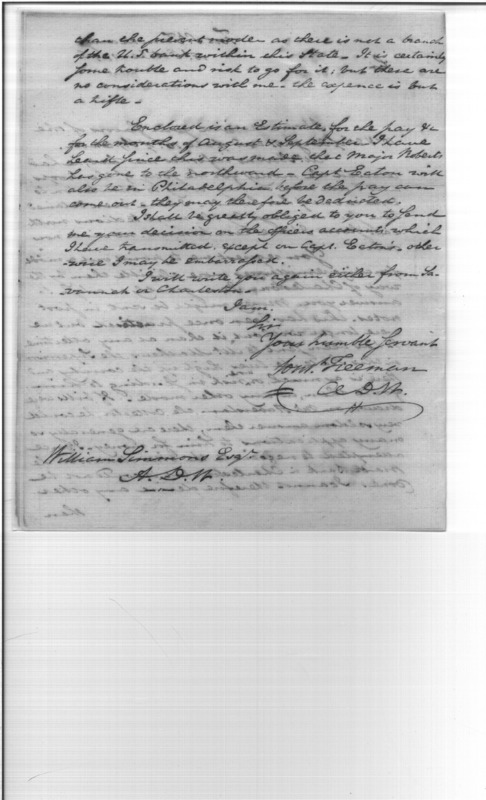 than the present mode - as there is not a branch
of the U.S. bank within this State - It is certainly
some trouble and risk to go for it; but these are
no considerations with me - the expence is but
a trifle -
Enclosed is an Estimate for the pay &c
for the months of August & September I have
learnt since that was made, that Major Roberts
has gone to the northward - Capt. Eaton will
also be in Philadelphia before the pay can
come out - they may therefore be deducted.
I shall be greatly obliged to you to send
me your decision on the officers accounts which
I have transmitted, except on Capt. Eaton's, other
wise I may be embarrassed.
I will write you again either from Sa
vannah or Charleston -
I am
Sir
Your humble Servant
Freeman
A. D. W.
William Simmons Esqr.
A. D. W.